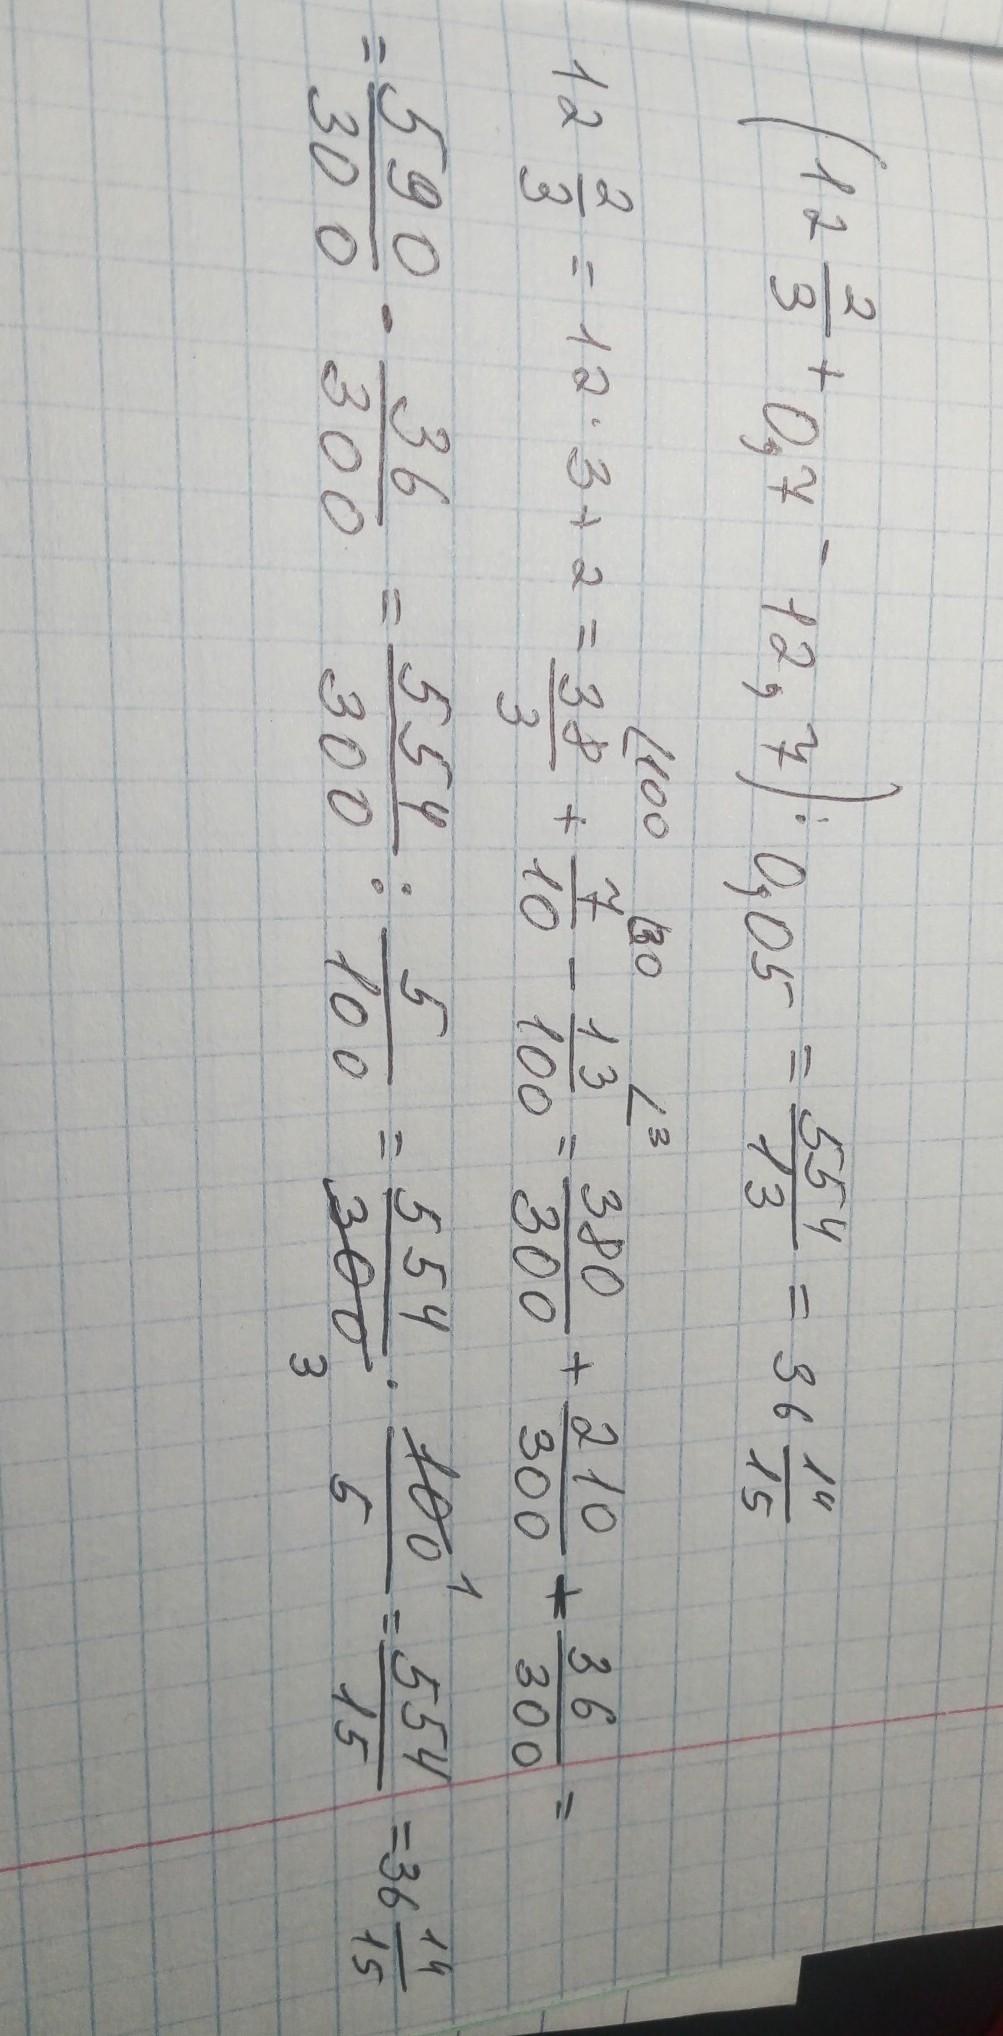 (12 2/3 + 0,7 - 12,7) : 0,05 = 554/13 = 36 14/15
12 2/3 = 12 · 3 + 2 = 38/3 (100 + 7/10 (30 - 13/100 (3 = 380/300 + 210/300 + 36/300 =
= 590/300 - 36/300 = 554/300 : 5/100 = 554/300 3 · 100 1/5 = 554/15 = 36 14/15